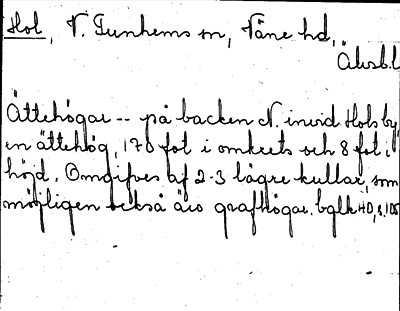 Hol, V. Tunhems sn, Väne hd,
Älvsb.l
Ättehögar -- på backen N. invid Hols by
en ättehög, 170 fot i omkrets och 8 fot i
höjd. Omgifves af 2-3 lägre kullar, som
möjligen också äro grafhögar.